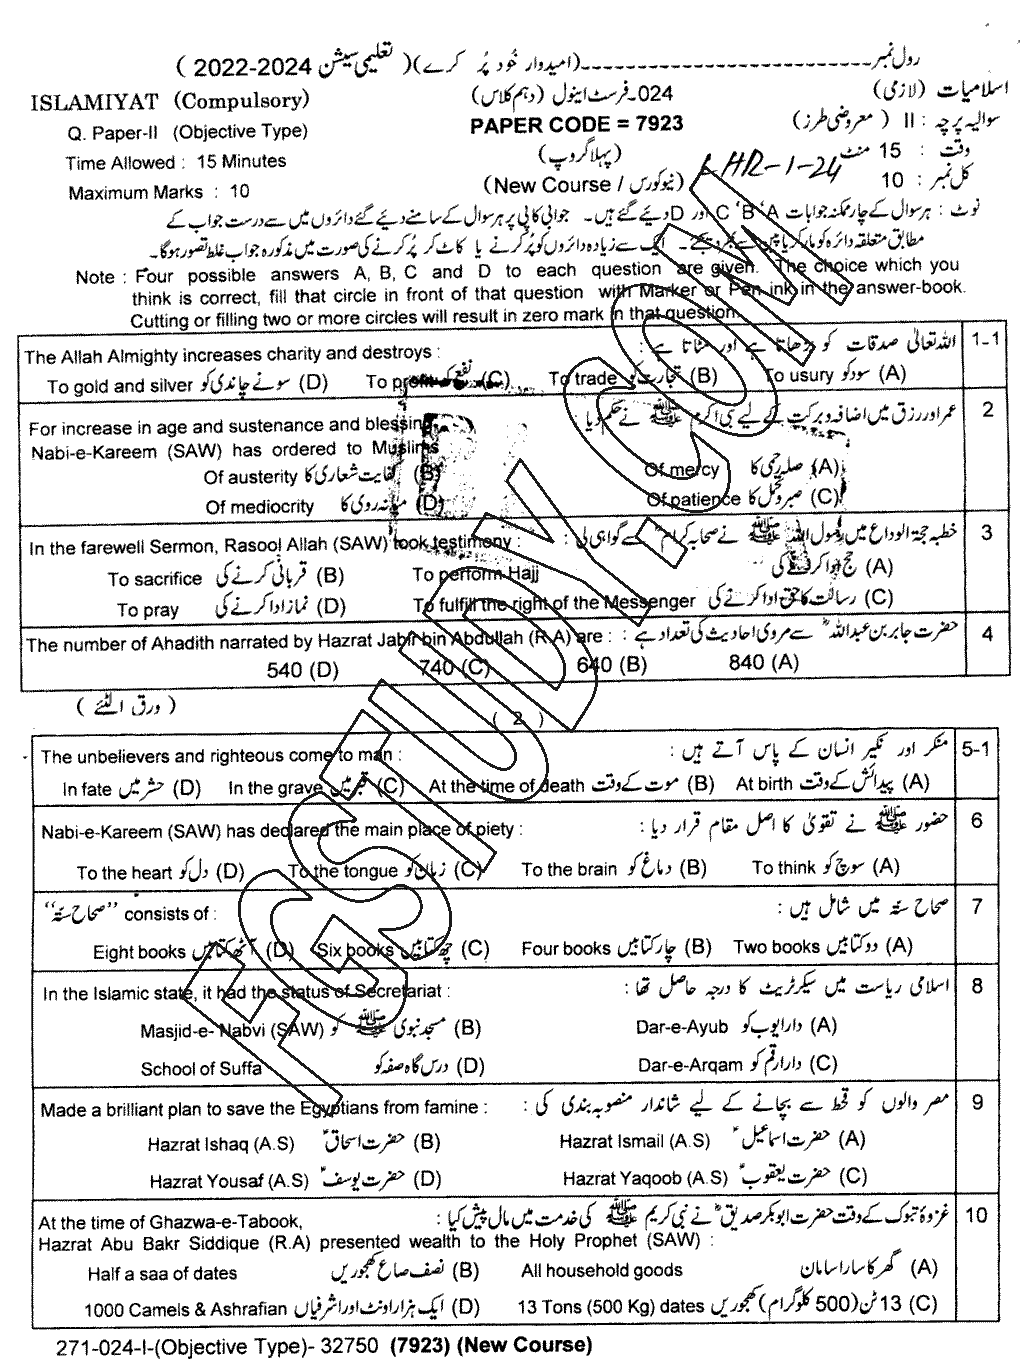 رول نمبر-------------------------(امیدوار خود پُر کرے)( تعلیمی سیشن 2024-2022 )
اسلامیات (لازمی) 024-فرسٹ اینول (دہم کلاس) ISLAMIYAT (Compulsory)
سوالیہ پرچہ : II ( معروضی طرز) PAPER CODE = 7923 Q. Paper-II (Objective Type)
وقت : 15 منٹ (پہلا گروپ) Time Allowed : 15 Minutes
LHR-1-24
کل نمبر : 10 (New Course / نیوکورس) Maximum Marks : 10
نوٹ : ہر سوال کے چار ممکنہ جوابات A، B، C اور D دیئے گئے ہیں۔ جوابی کاپی پر ہر سوال کے سامنے دیئے گئے دائروں میں سے درست جواب کے
مطابق متعلقہ دائرہ کو مارکر یا پین سے بھر دیجئے۔ ایک سے زیادہ دائروں کو پُر کرنے یا کاٹ کر پُر کرنے کی صورت میں مذکورہ جواب غلط تصور ہوگا۔
Note : Four possible answers A, B, C and D to each question are given. The choice which you
think is correct, fill that circle in front of that question with Marker or Pen ink in the answer-book.
Cutting or filling two or more circles will result in zero mark in that question.
1-1 اللہ تعالیٰ صدقات کو بڑھاتا ہے اور مٹاتا ہے :
The Allah Almighty increases charity and destroys :
(A) سود کو To usury (B) تجارت کو To trade (C) نفع کو To profit (D) سونے چاندی کو To gold and silver
2 عمر اور رزق میں اضافہ و برکت کے لیے نبی اکرم ﷺ نے حکم دیا
For increase in age and sustenance and blessing,
Nabi-e-Kareem (SAW) has ordered to Muslims
(A) صلہ رحمی کا Of mercy (B) کفایت شعاری کا Of austerity
(C) صبر و تحمل کا Of patience (D) میانہ روی کا Of mediocrity
3 خطبہ حجۃ الوداع میں رسول اللہ ﷺ نے صحابہ کرامؓ سے گواہی لی :
In the farewell Sermon, Rasool Allah (SAW) took testimony :
(A) حج ادا کرنے کی To perform Hajj (B) قربانی کرنے کی To sacrifice
(C) رسالت کا حق ادا کرنے کی To fulfill the right of the Messenger (D) نماز ادا کرنے کی To pray
4 حضرت جابر بن عبداللہؓ سے مروی احادیث کی تعداد ہے :
The number of Ahadith narrated by Hazrat Jabir bin Abdullah (R.A) are :
840 (A) 640 (B) 740 (C) 540 (D)
( ورق الٹئے )
( 2 )
5-1 منکر اور نکیر انسان کے پاس آتے ہیں :
The unbelievers and righteous come to man :
(A) پیدائش کے وقت At birth (B) موت کے وقت At the time of death (C) قبر میں In the grave (D) حشر میں In fate
6 حضور ﷺ نے تقویٰ کا اصل مقام قرار دیا :
Nabi-e-Kareem (SAW) has declared the main place of piety :
(A) سوچ کو To think (B) دماغ کو To the brain (C) زبان کو To the tongue (D) دل کو To the heart
7 صحاح ستہ میں شامل ہیں :
"صحاح ستہ" consists of :
(A) دو کتابیں Two books (B) چار کتابیں Four books (C) چھ کتابیں Six books (D) آٹھ کتابیں Eight books
8 اسلامی ریاست میں سیکرٹریٹ کا درجہ حاصل تھا :
In the Islamic state, it had the status of Secretariat :
(A) دار ایوب کو Dar-e-Ayub (B) مسجد نبوی ﷺ کو Masjid-e- Nabvi (SAW)
(C) دار ارقم کو Dar-e-Arqam (D) درس گاہ صفہ کو School of Suffa
9 مصر والوں کو قحط سے بچانے کے لیے شاندار منصوبہ بندی کی :
Made a brilliant plan to save the Egyptians from famine :
(A) حضرت اسماعیلؑ Hazrat Ismail (A.S) (B) حضرت اسحاقؑ Hazrat Ishaq (A.S)
(C) حضرت یعقوبؑ Hazrat Yaqoob (A.S) (D) حضرت یوسفؑ Hazrat Yousaf (A.S)
10 غزوۂ تبوک کے وقت حضرت ابوبکر صدیقؓ نے نبی کریم ﷺ کی خدمت میں مال پیش کیا :
At the time of Ghazwa-e-Tabook,
Hazrat Abu Bakr Siddique (R.A) presented wealth to the Holy Prophet (SAW) :
(A) گھر کا سارا سامان All household goods (B) نصف صاع کھجوریں Half a saa of dates
(C) 13 ٹن (500 کلوگرام) کھجوریں 13 Tons (500 Kg) dates (D) ایک ہزار اونٹ اور اشرفیاں 1000 Camels & Ashrafian
271-024-I-(Objective Type)- 32750 (7923) (New Course)
FGSTUDY.COM